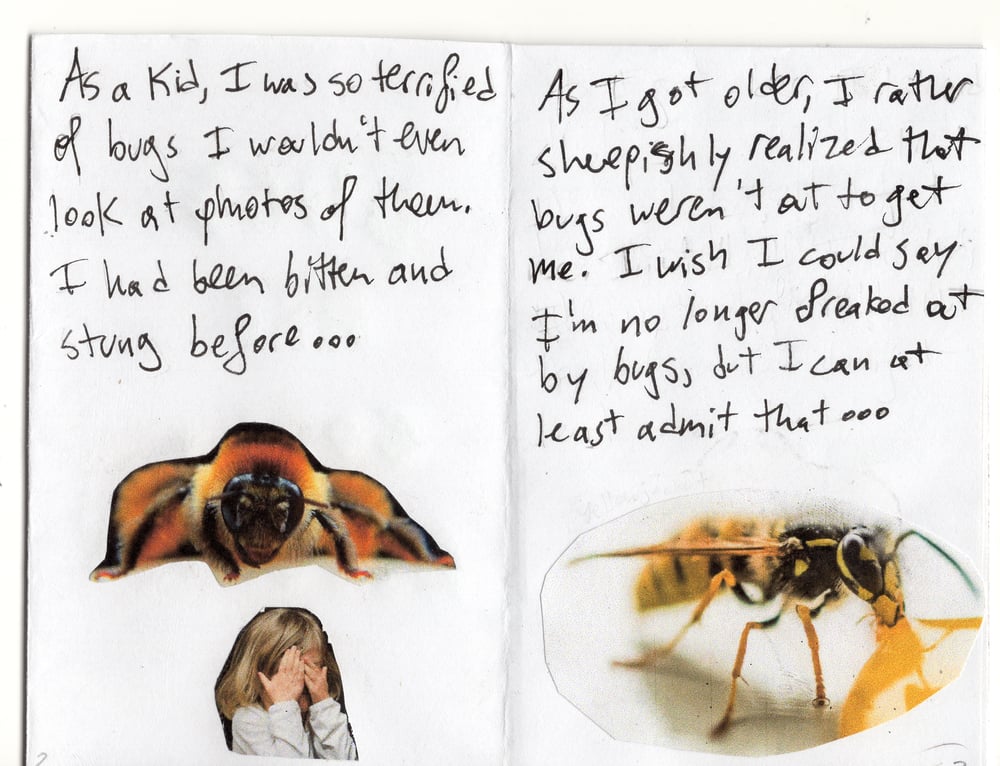 As a Kid, I was so terrified
of bugs I wouldn't even
look at photos of them.
I had been bitten and
stung before...
As I got older, I rather
sheepishly realized that
bugs weren't out to get
me. I wish I could say
I'm no longer freaked out
by bugs, but I can at
least admit that...
2